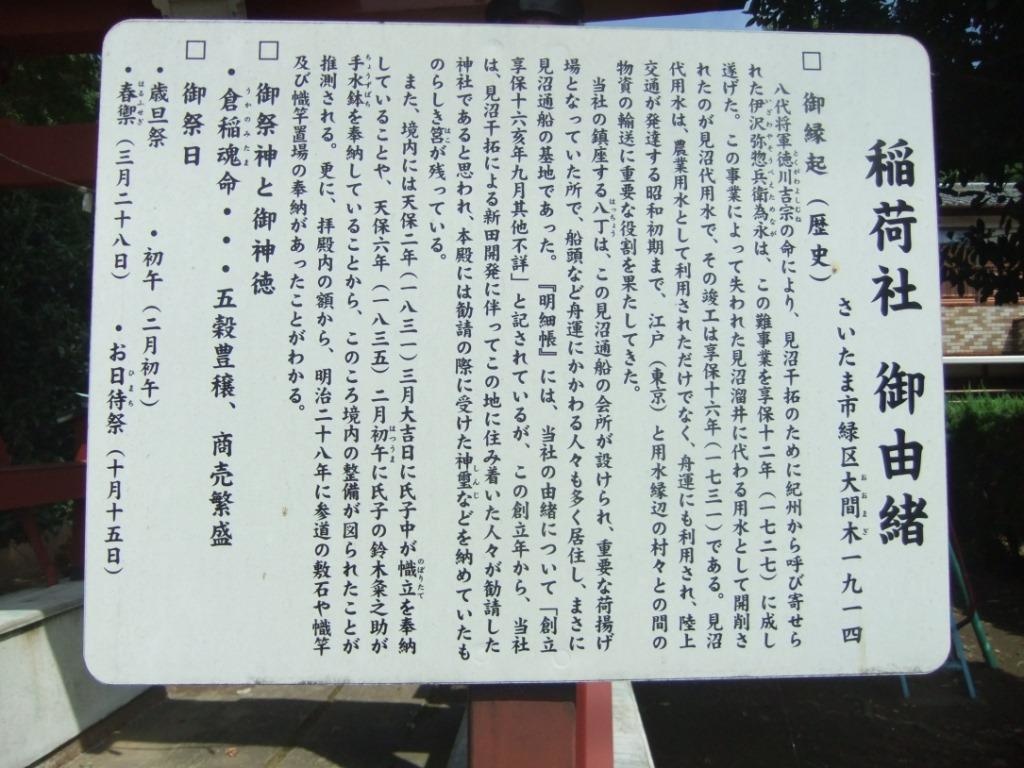 稲荷社　御由緒
さいたま市緑区大間木一九一四
□　御縁起（歴史）
八代将軍徳川吉宗の命により、見沼干拓のために紀州から呼び寄せら
れた伊沢弥惣兵衛為永は、この難事業を享保十二年（一七二七）に成し
遂げた。この事業によって失われた見沼溜井に代わる用水として開削さ
れたのが見沼代用水で、その竣工は享保十六年（一七三一）である。見沼
代用水は、農業用水として利用されただけでなく、舟運にも利用され、陸上
交通が発達する昭和初期まで、江戸（東京）と用水縁辺の村々との間の
物資の輸送に重要な役割を果たしてきた。
当社の鎮座する八丁は、この見沼通船の会所が設けられ、重要な荷揚げ
場となっていた所で、船頭など舟運にかかわる人々も多く居住し、まさに
見沼通船の基地であった。『明細帳』には、当社の由緒について「創立
享保十六亥年九月其他不詳」と記されているが、この創立年から、当社
は、見沼干拓による新田開発に伴ってこの地に住み着いた人々が勧請した
神社であると思われ、本殿には勧請の際に受けた神璽などを納めていたも
のらしき筥が残っている。
また、境内には天保二年（一八三一）三月大吉日に氏子中が幟立を奉納
していることや、天保六年（一八三五）二月初午に氏子の鈴木粂之助が
手水鉢を奉納していることから、このころ境内の整備が図られたことが
推測される。更に、拝殿内の額から、明治二十八年に参道の敷石や幟竿
及び幟竿置場の奉納があったことがわかる。
□　御祭神と御神徳
・倉稲魂命・・・五穀豊穣、商売繁盛
□　御祭日
・歳旦祭　・初午（二月初午）
・春禦（三月二十八日）　・お日待祭（十月十五日）